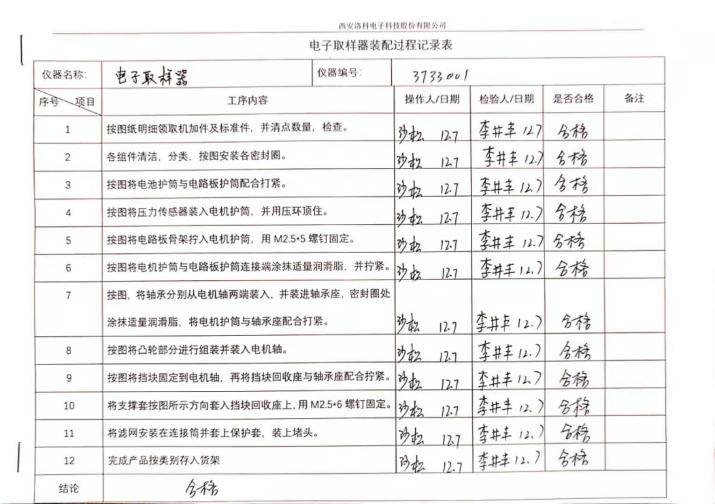 西安洛科电子科技股份有限公司
电子取样器装配过程记录表
仪器名称: 电子取样器 仪器编号: 3733001
序号 项目 工序内容 操作人/日期 检验人/日期 是否合格 备注
1 按图纸明细领取机加件及标准件，并清点数量，检查。 沙松 12.7 李井丰 12.7 合格
2 各组件清洁，分类，按图安装各密封圈。 沙松 12.7 李井丰 12.7 合格
3 按图将电池护筒与电路板护筒配合打紧。 沙松 12.7 李井丰 12.7 合格
4 按图将压力传感器装入电机护筒，并用压环顶住。 沙松 12.7 李井丰 12.7 合格
5 按图将电路板骨架拧入电机护筒，用 M2.5*5 螺钉固定。 沙松 12.7 李井丰 12.7 合格
6 按图将电机护筒与电路板护筒连接端涂抹适量润滑脂，并拧紧。 沙松 12.7 李井丰 12.7 合格
7 按图，将轴承分别从电机轴两端装入，并装进轴承座，密封圈处
涂抹适量润滑脂，将电机护筒与轴承座配合打紧。 沙松 12.7 李井丰 12.7 合格
8 按图将凸轮部分进行组装并装入电机轴。 沙松 12.7 李井丰 12.7 合格
9 按图将挡块固定到电机轴，再将挡块回收座与轴承座配合拧紧。 沙松 12.7 李井丰 12.7 合格
10 将支撑套按图所示方向套入挡块回收座上，用 M2.5*6 螺钉固定。 沙松 12.7 李井丰 12.7 合格
11 将滤网安装在连接筒并套上保护套，装上堵头。 沙松 12.7 李井丰 12.7 合格
12 完成产品按类别存入货架 沙松 12.7 李井丰 12.7 合格
结论 合格